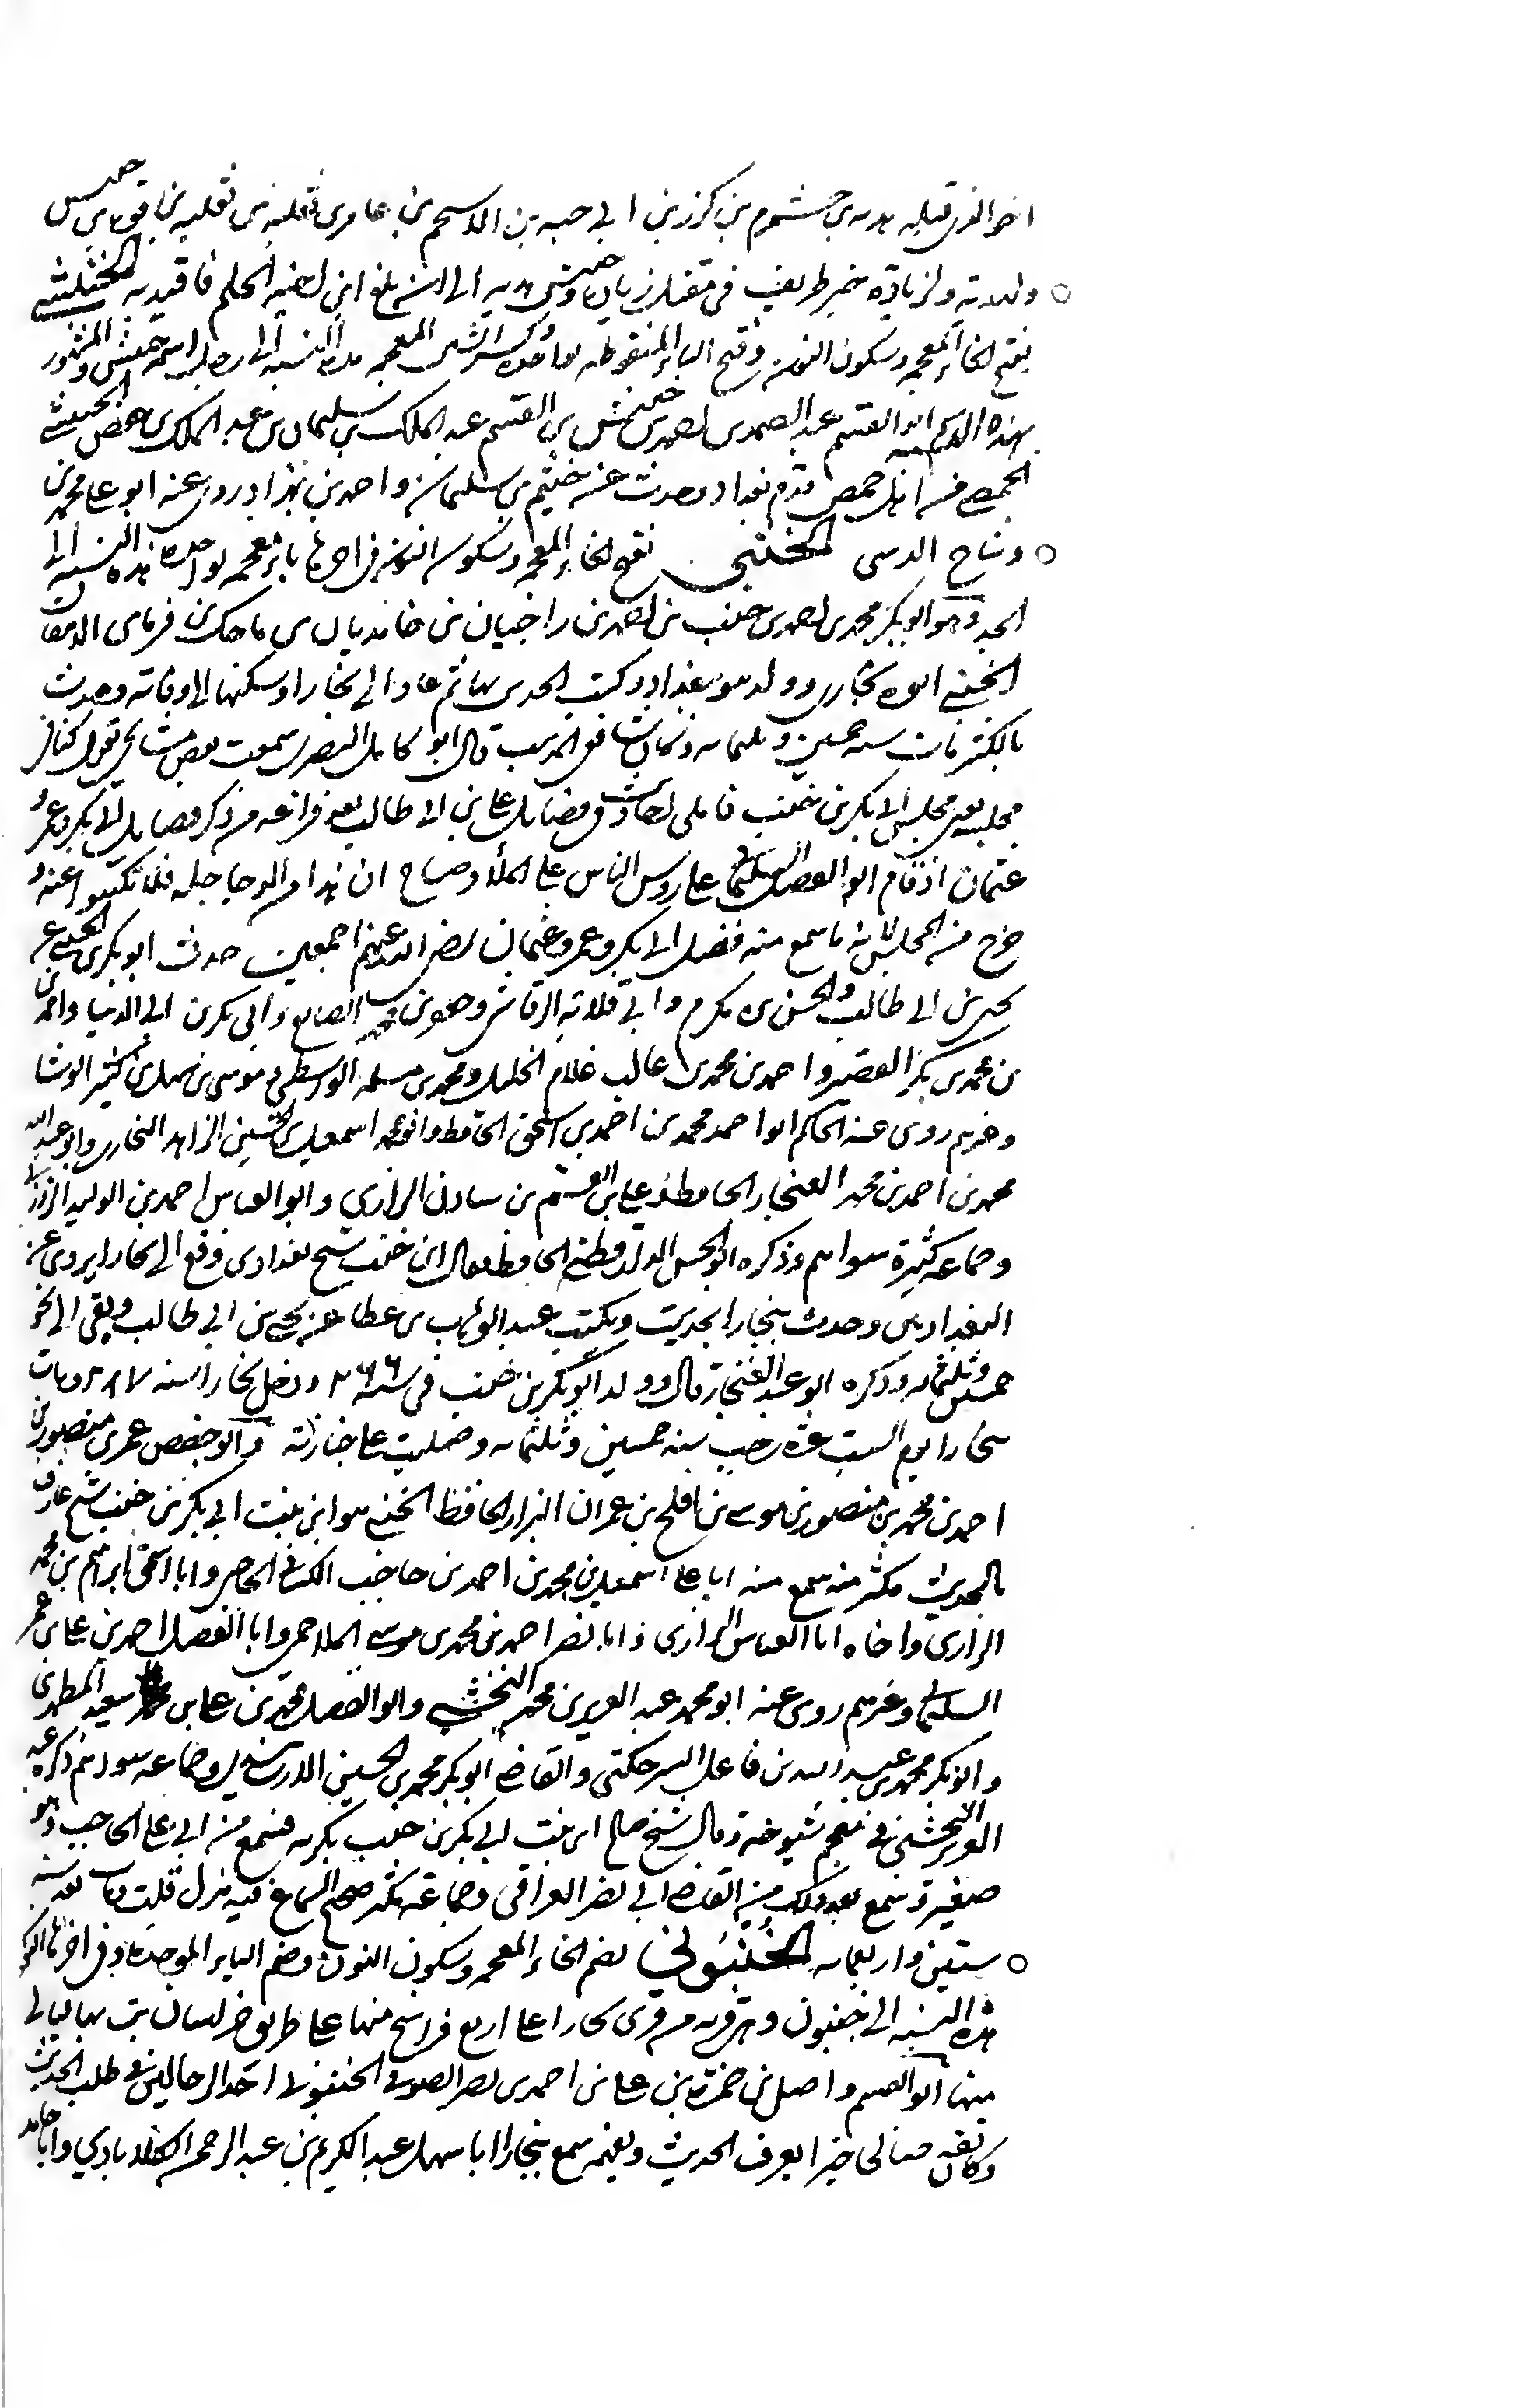 اخو الذى قتله هدبه بن خشرم بن كرز بن ابي حيه بن الاسحم بن عامر بن ثعلبه بن
ولهدبه ولزيادة خبر طريف في مقتل زياده وحبس هدبه الى ان بلغ ابن لضه الحلم فاقيد به الخنبشى
بفتح الخاء المعجمه وسكون النون وفتح الباء المنقوطه بواحده وكسر الشين المعجمه هذه النسبه الى رجل اسمه خنبش والمشهور
بهذه النسبه ابو القسم عبد الصمد بن احمد بن خنبش بن القسم بن عبد الملك بن سليمان بن عبد الملك بن حفص الخنبشى
الحمصي من اهل حمص قدم بغداد وحدث عن خيثم بن سليمان واحمد بن بهزاد روى عنه ابو علي محمد بن
وشاح الخنبي بفتح الخاء المعجمه وسكون النون في اخرها باء معجمه بواحده هذه النسبه الى
الجد وهو ابو بكر محمد بن احمد بن خنب بن احمد بن راجيان بن خامديال بن الدهقان
الخنبي ابوه بخارى وولد هو ببغداد وكتب الحديث بها ثم عاد الى بخارا وسكنها الى وفاته وحدث
بالكثير مات سنه خمسين وثلثمايه وكان شافعى المذهب قال ابو كامل البصرى سمعت بعض مشايخي يقول كنا في
مجلس ابي بكر بن خنب فاملى احاديث في فضايل علي بن ابي طالب بعد فراغه من ذكر فضايل ابي بكر وعمر و
عثمان اذ قام ابو الفضل السليماني على روس الناس على الملأ وصاح ان هذا دجال من الدجاجله فلا تكتبوا عنه و
خرج من المجلس لانه ما سمع منه فضل ابي بكر وعمر وعثمان رضى الله عنهم اجمعين حدث ابو بكر الخنبي عن
يحيى بن ابي طالب والحسن بن مكرم وابي قلابه الرقاشي وجعفر بن محمد الصايغ وابي بكر بن ابي الدنيا واحمد
بن محمد بن بكر القصير واحمد بن محمد بن غالب غلام الخليل ومحمد بن مسلمه الواسطي وموسى بن سهل بن كثير الوشا
وغيرهم روى عنه الحاكم ابو احمد محمد بن احمد بن اسحق الحافظ وابو محمد اسمعيل بن الحسين الزاهد البخارى وابو عبد الله
محمد بن احمد بن محمد الغنجار الحافظ وعلي بن القسم بن شاذان الرازي وابو العباس احمد بن الوليد الزوزنى
وجماعه كثيرة سواهم وذكره ابو الحسن الدارقطني الحافظ فقال ابن خنب شيخ بغدادى وقع الى بخارا يروى عن
البغداديين وحدث ببخارا بحديث ويكتب عبد الوهاب بن عطا عن يحيى بن ابي طالب وبقى الى نحو
خمسين وثلثمايه وذكره ابو عبد الله الغنجار قال وولد ابو بكر بن خنب في سنه ٢٦٦ ودخل بخارا سنه ٢٨٧ ومات
ببخارا يوم السبت غره رجب سنه خمسين وثلثمايه وصليت على جنازته وابو حفص عمر بن منصور بن
احمد بن محمد بن منصور بن موسى بن افلح بن عمران البزار الحافظ الخنبي هو ابن بنت ابي بكر بن خنب شيخ عارف
بالحديث مكثر منه سمع منه ابا علي اسمعيل بن محمد بن احمد بن حاجب الكشاني الحاجبي وابا اسحق ابراهيم بن محمد
الرازى واخاه ابا العباس الرازى وابا نصر احمد بن محمد بن موسى الملاحمي وابا الفضل احمد بن علي بن عمر
السليماني وغيرهم روى عنه ابو محمد عبد العزيز بن محمد النخشبي وابو الفضل محمد بن علي بن سعيد المطهرى
وابو بكر محمد بن عبد الله بن فاعل السرخكتى والقاضي ابو بكر محمد بن الحسين وجماعه سواهم ذكره عبد
العزيز النخشبي في معجم شيوخه وقال شيخ صالح ابن بنت ابي بكر بن خنب بكر به فسمع من ابي علي الحاجب وهو
صغير وسمع بعد ذلك من القاضي ابي نصر العراقي وجماعه مكثر صحيح السماع فيه هزل قلت مات بعد سنه
ستين واربعمايه الخُنبُوني بضم الخاء المعجمه وسكون النون وضم الباء الموحده وفي اخرها النون
هذه النسبه الى خنبون وهي قريه من قرى بخارا على اربع فراسخ منها على طريق خراسان بت بها ليالي
منها ابو القسم واصل بن حمزة بن علي بن احمد بن نصر الصوفى الخنبونى احد الرحالين في طلب الحديث
وكان ثقه صالحا خيرا يعرف الحديث ويفهمه سمع ببخارا ابا سهل عبد الكريم بن عبد الرحمن الكلاباذي وابا حامد